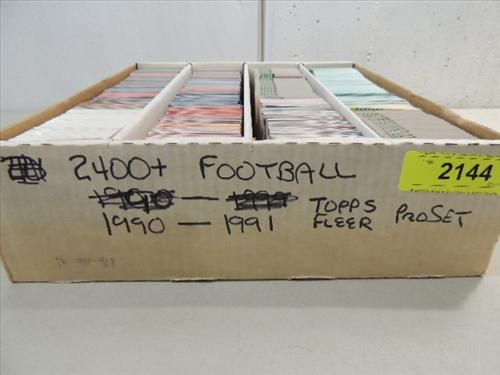 2400+ FOOTBALL
2144
1990 – 1991 TOPPS
FLEER PROSET